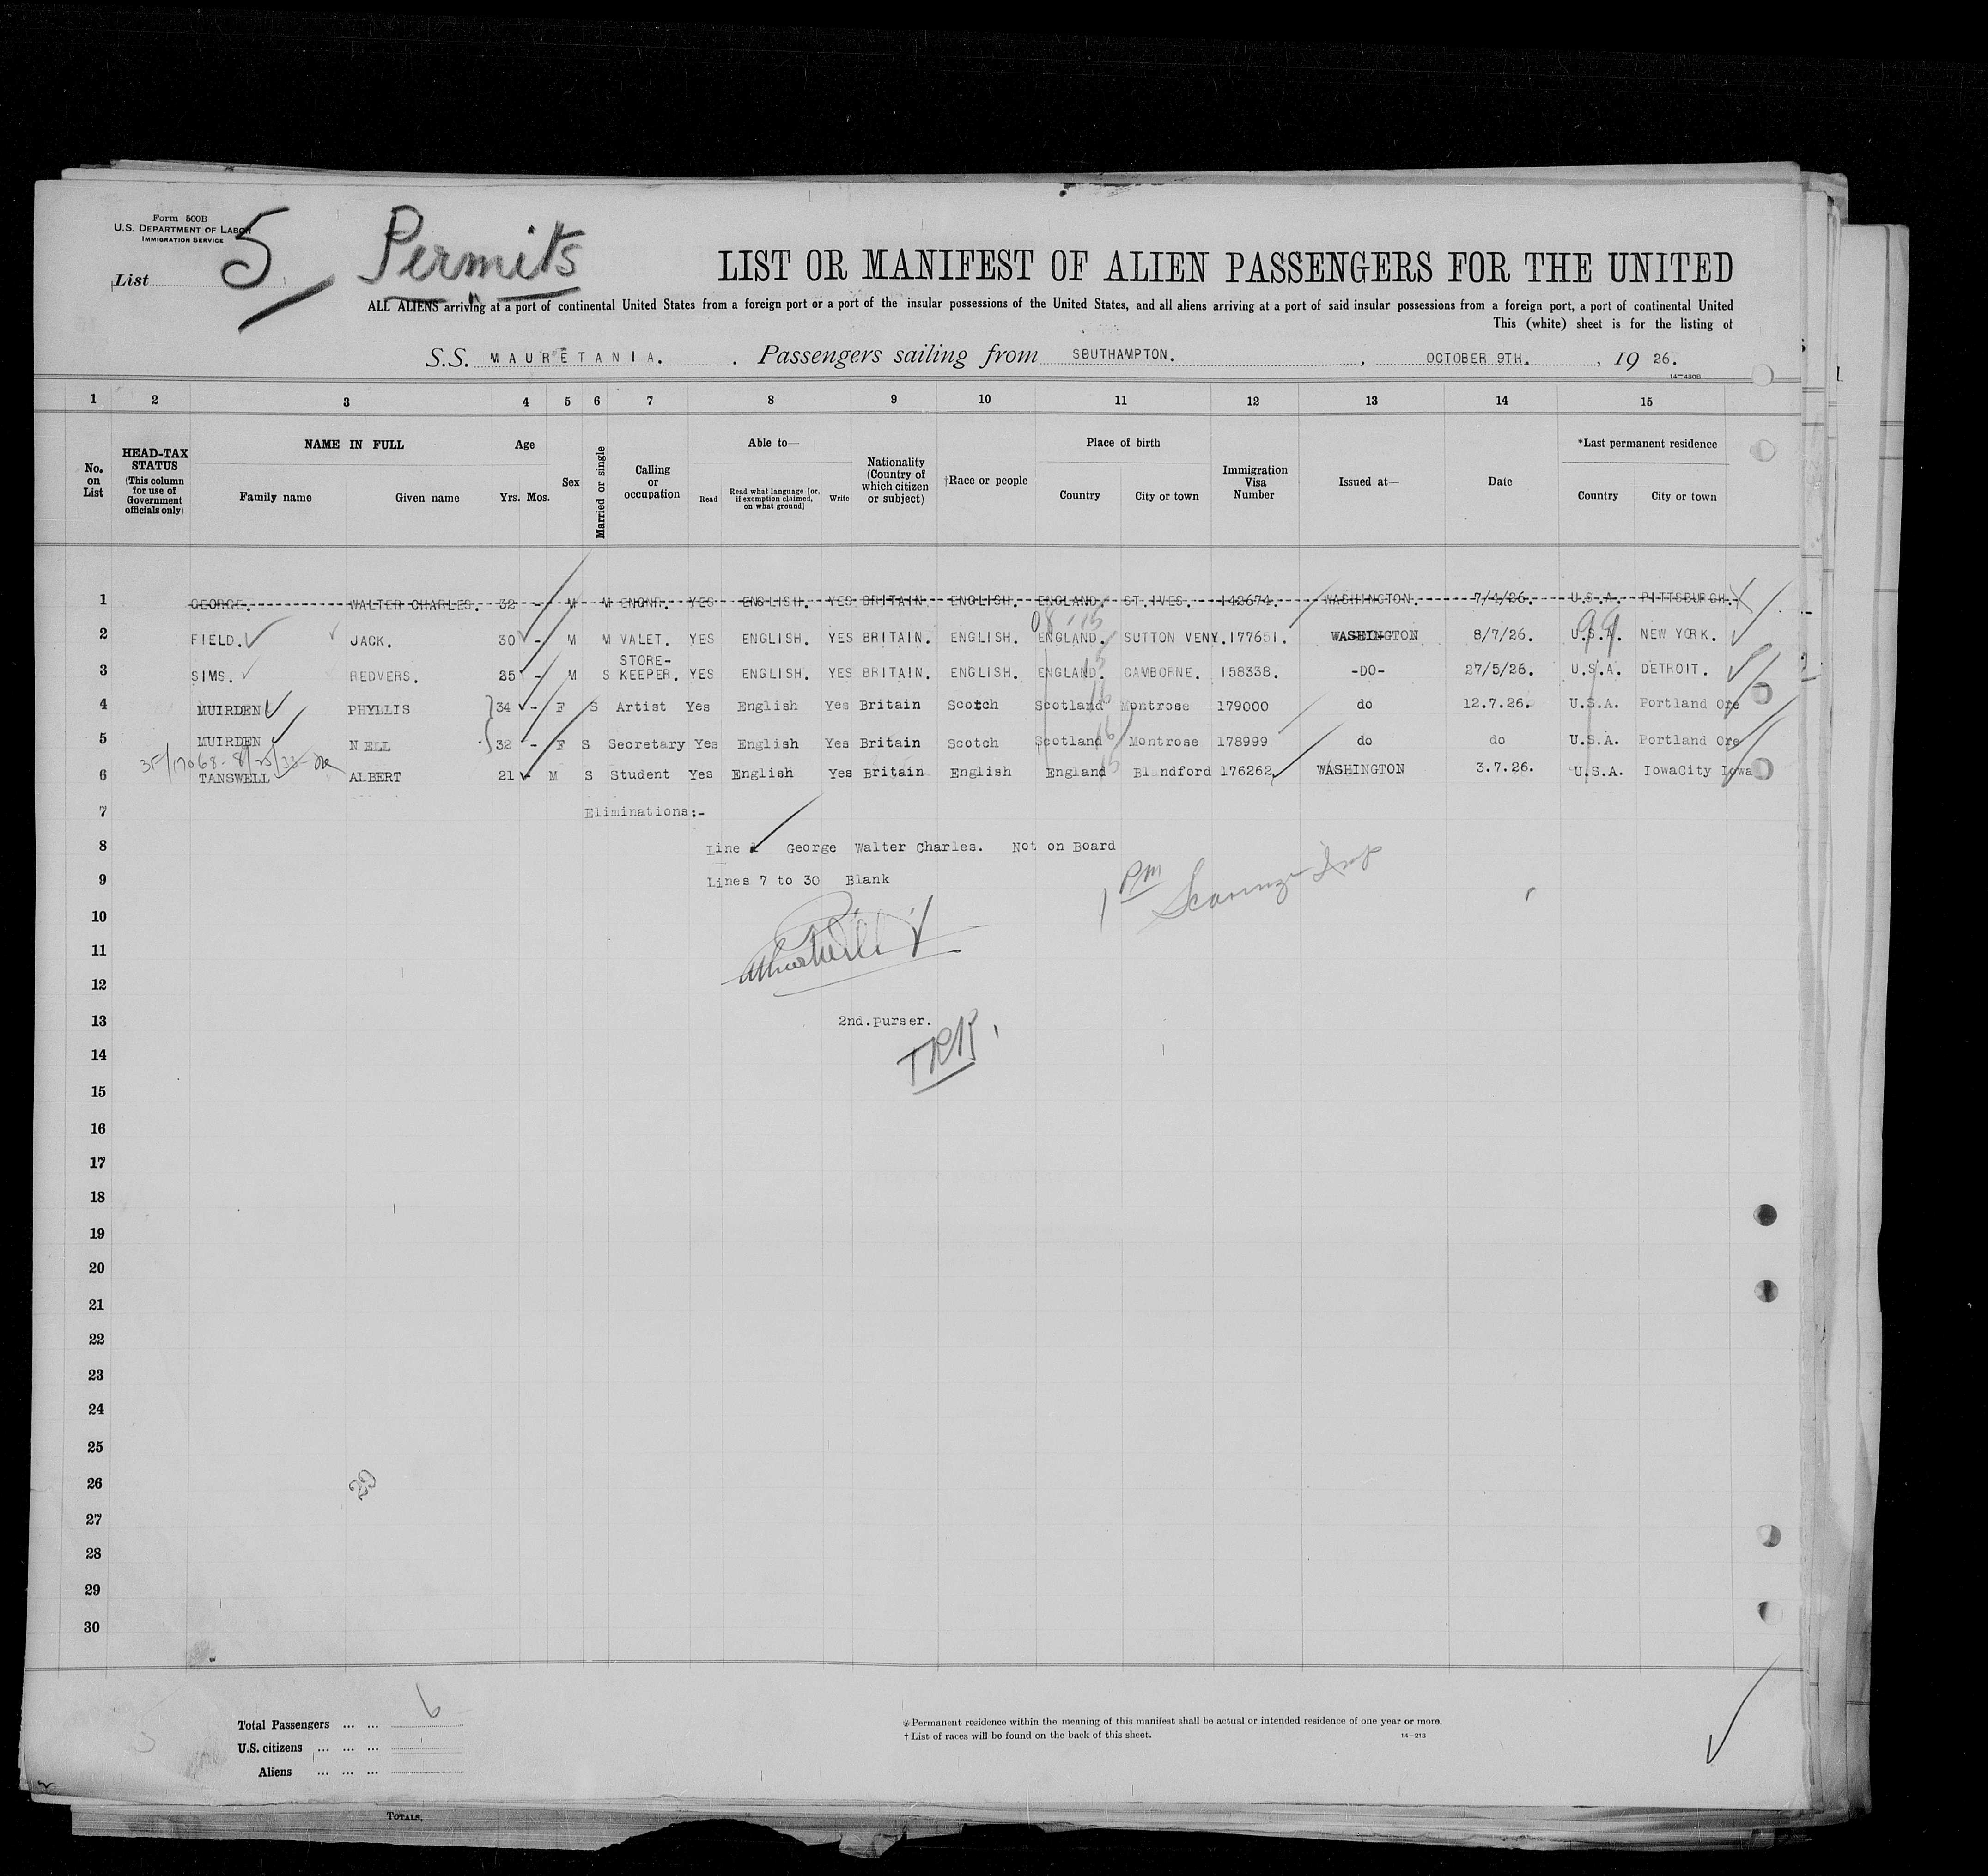 Form 500B
U.S. DEPARTMENT OF LABOR
IMMIGRATION SERVICE
List 5 Permits
LIST OR MANIFEST OF ALIEN PASSENGERS FOR THE UNITED
ALL ALIENS arriving at a port of continental United States from a foreign port or a port of the insular possessions of the United States, and all aliens arriving at a port of said insular possessions from a foreign port, a port of continental United
This (white) sheet is for the listing of
S.S. MAURETANIA. Passengers sailing from SBUTHAMPTON. , OCTOBER 9TH. , 19 26.
14-420B
1 2 3 4 5 6 7 8 9 10 11 12 13 14 15
No. on List
HEAD-TAX STATUS (This column for use of Government officials only)
NAME IN FULL
Family name Given name
Age
Yrs. Mos.
Sex
Married or single
Calling or occupation
Able to—
Read
Read what language [or, if exemption claimed, on what ground]
Write
Nationality (Country of which citizen or subject)
†Race or people
Place of birth
Country City or town
Immigration Visa Number
Issued at—
Date
*Last permanent residence
Country City or town
1 GEORGE. WALTER CHARLES. 32 - M M ENGNR. YES ENGLISH. YES BRITAIN. ENGLISH. ENGLAND. ST.IVES. 142674. WASHINGTON. 7/4/26. U.S.A. PITTSBURGH.
2 FIELD. JACK. 30 - M M VALET. YES ENGLISH. YES BRITAIN. ENGLISH. ENGLAND. SUTTON VENY. 177651. WASHINGTON 8/7/26. U.S.A. NEW YORK.
3 SIMS. REDVERS. 25 - M S STORE-KEEPER. YES ENGLISH. YES BRITAIN. ENGLISH. ENGLAND. CAMBORNE. 158338. -DO- 27/5/26. U.S.A. DETROIT.
4 MUIRDEN PHYLLIS 34 - F S Artist Yes English Yes Britain Scotch Scotland Montrose 179000 do 12.7.26. U.S.A. Portland Ore
5 MUIRDEN NELL 32 - F S Secretary Yes English Yes Britain Scotch Scotland Montrose 178999 do do U.S.A. Portland Ore
6 TANSWELL ALBERT 21 - M S Student Yes English Yes Britain English England Blandford 176262 WASHINGTON 3.7.26. U.S.A. IowaCity Iowa
7 Eliminations:-
8 Line 1 George Walter Charles. Not on Board
9 Lines 7 to 30 Blank
1 PM
10
11
12
13 2nd.purser.
TRR
14
15
16
17
18
19
20
21
22
23
24
25
26 29
27
28
29
30
Total Passengers ... ... 6
U.S. citizens ... ... ...
Aliens ... ... ...
TOTALS.
*Permanent residence within the meaning of this manifest shall be actual or intended residence of one year or more.
†List of races will be found on the back of this sheet.
14-213